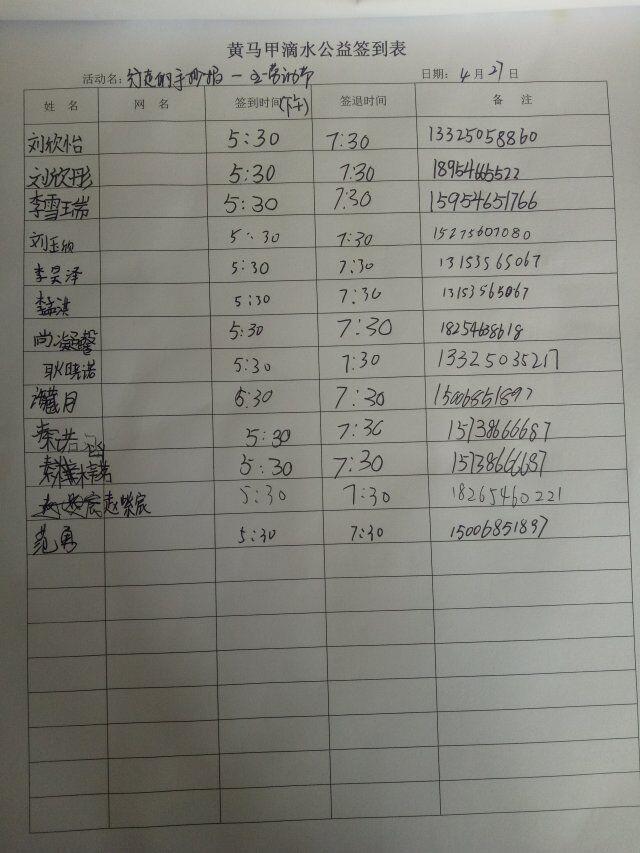 黄马甲滴水公益签到表
活动名: 手抄报一五一劳动节 日期: 4月27日
姓 名 网 名 签到时间(下午) 签退时间 备 注
刘欣怡 5:30 7:30 13325058860
刘欣彤 5:30 7:30 18954665522
李雪瑞 5:30 7:30 15954651766
刘玉欣 5:30 7:30 15275607080
李昊泽 5:30 7:30 13153565067
李孟淇 5:30 7:30 13153565067
尚凝馨 5:30 7:30 18254638618
耿晓诺 5:30 7:30 13325035217
月 5:30 7:30 15006851897
秦诺涵 5:30 7:30 15738666687
秦 5:30 7:30 15738666687
赵紫宸 5:30 7:30 18265460221
范勇 5:30 7:30 15006851897